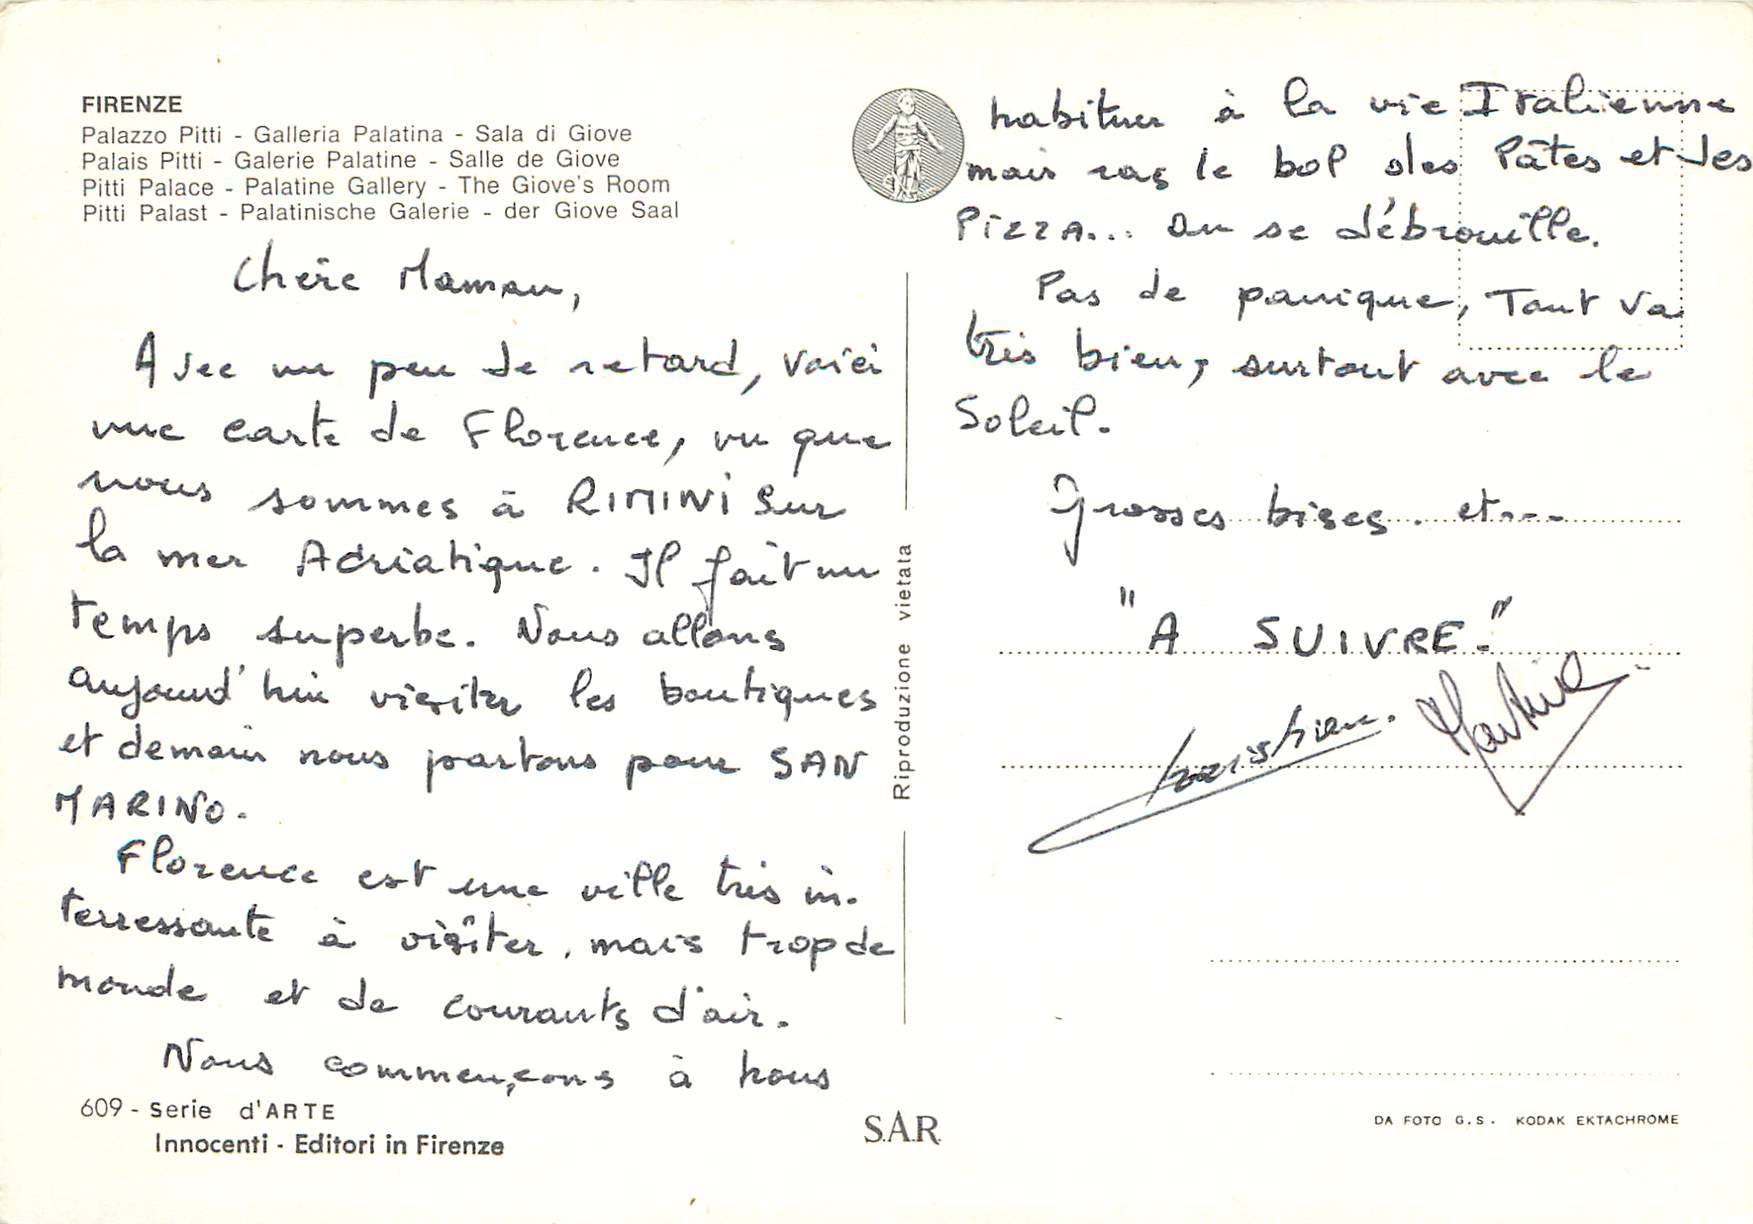 FIRENZE
Palazzo Pitti - Galleria Palatina - Sala di Giove
Palais Pitti - Galerie Palatine - Salle de Giove
Pitti Palace - Palatine Gallery - The Giove's Room
Pitti Palast - Palatinische Galerie - der Giove Saal
Chère Maman,
Avec un peu de retard, voici
une carte de Florence, vu que
nous sommes à RIMINI sur
la mer Adriatique. Il fait un
temps superbe. Nous allons
aujourd'hui visiter les boutiques
et demain nous partons pour SAN
MARINO.
Florence est une ville très in-
terressante à visiter, mais trop de
monde et de courants d'air.
Nous commençons à nous
609 - Serie d'ARTE
Innocenti - Editori in Firenze
Riproduzione vietata
S.A.R.
habituer à la vie Italienne
mais ras le bol des Pâtes et des
PIZZA... on se débrouille.
Pas de panique, Tout va
très bien, surtout avec le
Soleil.
Grosses bises. et....
"A SUIVRE."
Christian. Martine
DA FOTO G.S. KODAK EKTACHROME